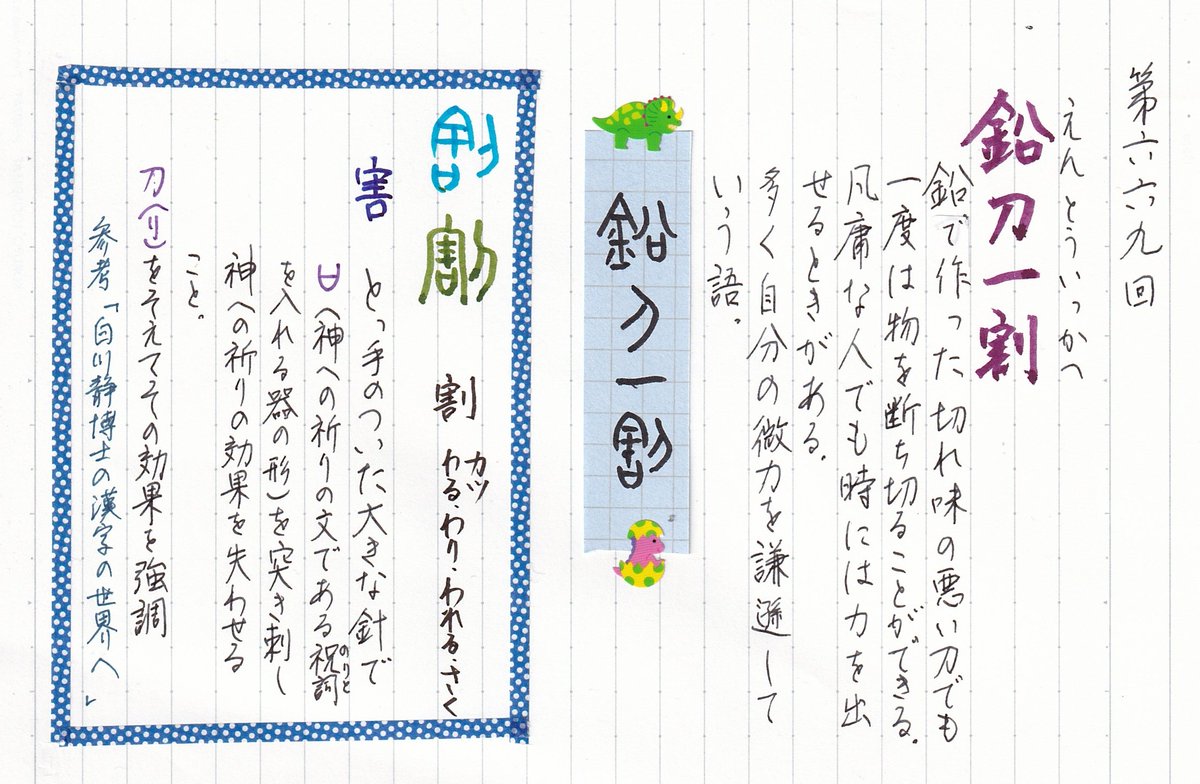 第六六九回
えんとういっかへ
鉛刀一割
鉛で作った切れ味の悪い刀でも
一度は物を断ち切ることができる。
凡庸な人でも時には力を出
せるときがある。
多く自分の微力を謙遜して
いう語。
鉛刀一割
割割
割 カツ
わる・わり・われる・さく
害 とっ手のついた大きな針で
ㅂ(神への祈りの文である祝詞
のりと
を入れる器の形)を突き刺し
神への祈りの効果を失わせる
こと。
刀(へり)をそえてその効果を強調
参考「白川静博士の漢字の世界へ」